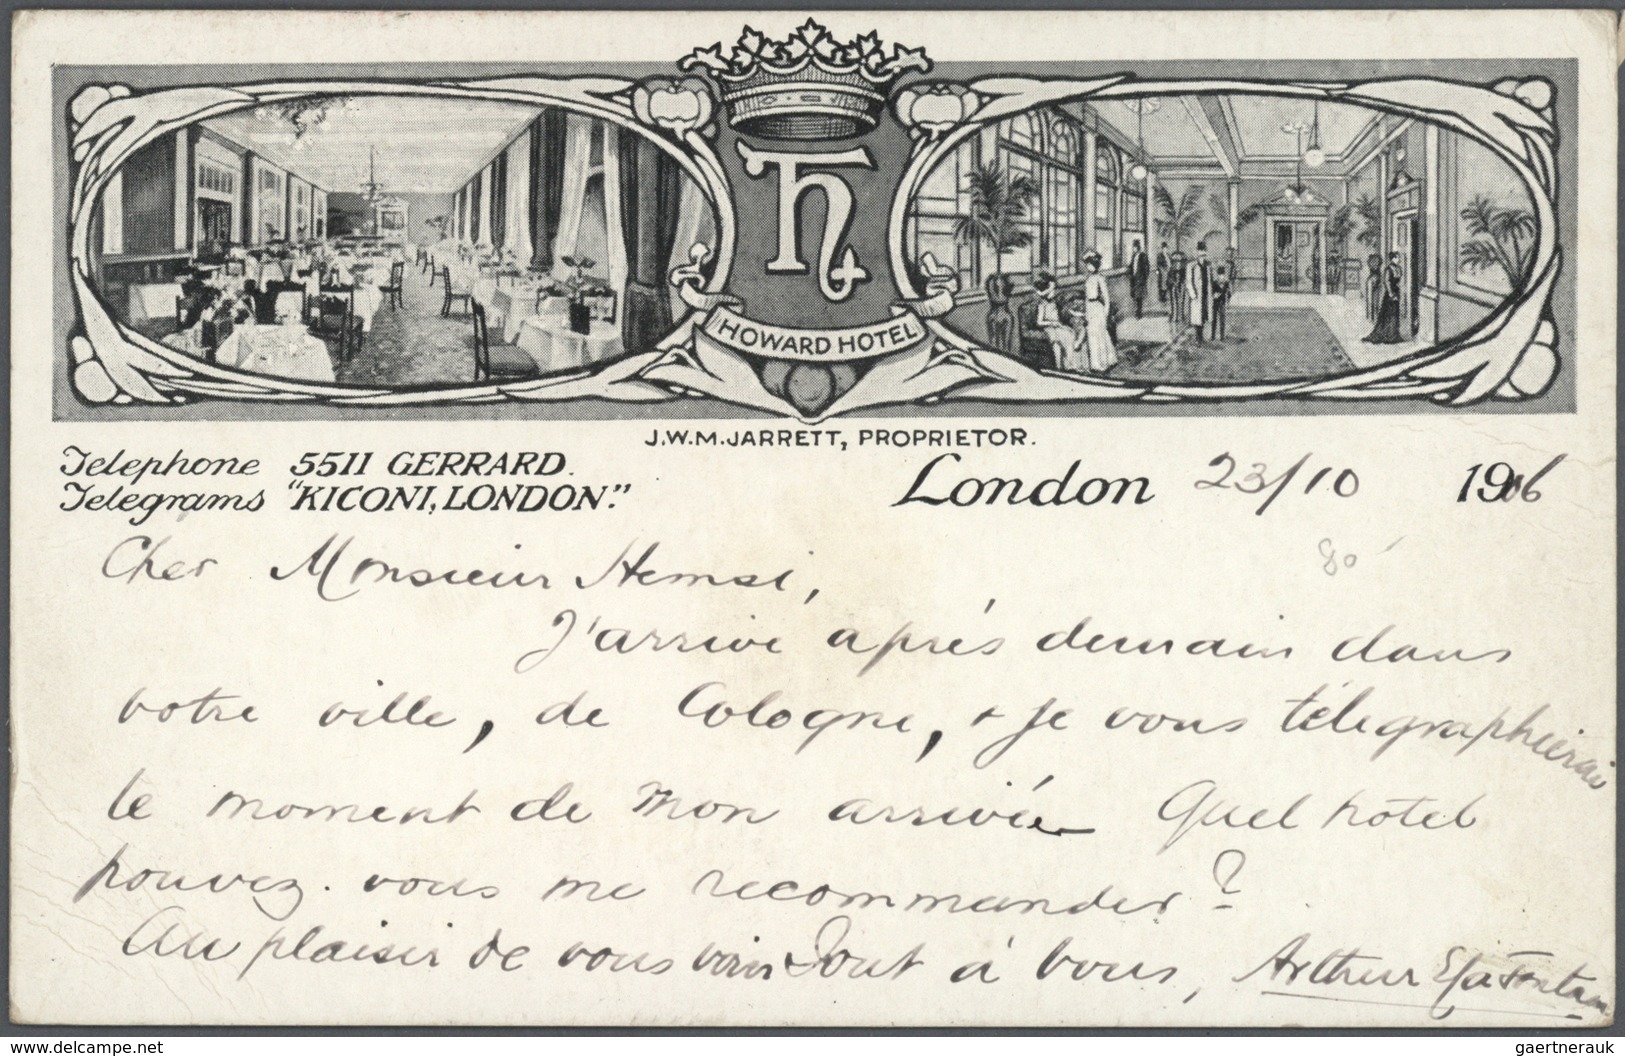 HOWARD HOTEL
J.W.M. JARRETT, PROPRIETOR.
Telephone 5511 GERRARD.
Telegrams "KICONI, LONDON."
London 23/10 1906
80
Cher Monsieur Hemsi,
J'arrive après demain dans
votre ville, de Cologne, & je vous télégraphierai
le moment de mon arrivée Quel hotel
pouvez-vous me recommander?
Au plaisir de vous voir Tout à vous, Arthur
delcampe.net
gaertnerauk